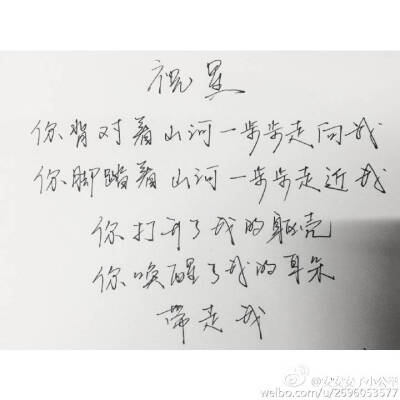 祝星
你背对着山河一步步走向我
你脚踏着山河一步步走近我
你打开了我的躯壳
你唤醒了我的耳朵
带走我
@安安安了小公举
weibo.com/u/2596053577